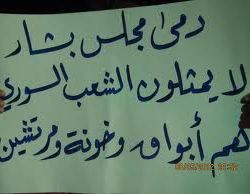 دمى مجلس بشار
لا يمثلون الشعب السوري
لهم أبواق وخونة ومرتشين